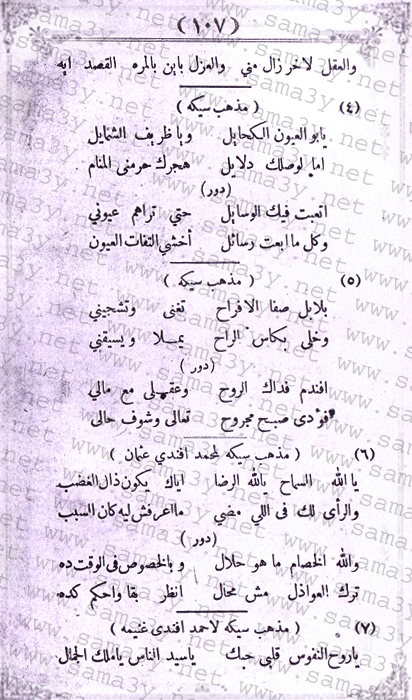 (١٠٧)
والعقل لاخر زال مني والعزل باين بالمره القصد ايه
(٤) ( مذهب سيكه )
يابو العيون الكحايل وياظريف الشمايل
اما لوصلك دلايل هجرك حرمنى المنام
(دور)
اتعبت فيك الوسايل حتي تراهم عيوني
وكل ما ابعت رسائل أخشي التفات العيون
(٥) ( مذهب سيكه )
بلابل صفا الافراح تغنى وتشجيني
وخلى بكاس الراح يملا ويسيقني
( دور )
افندم فداك الروح وعقلى مع مالي
فؤدى صبح مجروح تعالى وشوف حالى
(٦) ( مذهب سيكه لمحمد افندي عثمان )
يا الله السماح يالله الرضا اياك يكون ذال الغضب
والرأى لك فى اللي مضي مااعرفش ليه كان السبب
( دور )
والله الخصام ما هو حلال وبالخصوص فى الوقت ده
ترك العواذل مش محال انظر بقا واحكم كده
(٧) ( مذهب سيكه لاحمد افندى غنيمه )
ياروح النفوس قلبي حبك ياسيد الناس ياملك الجمال
www.sama3y.net